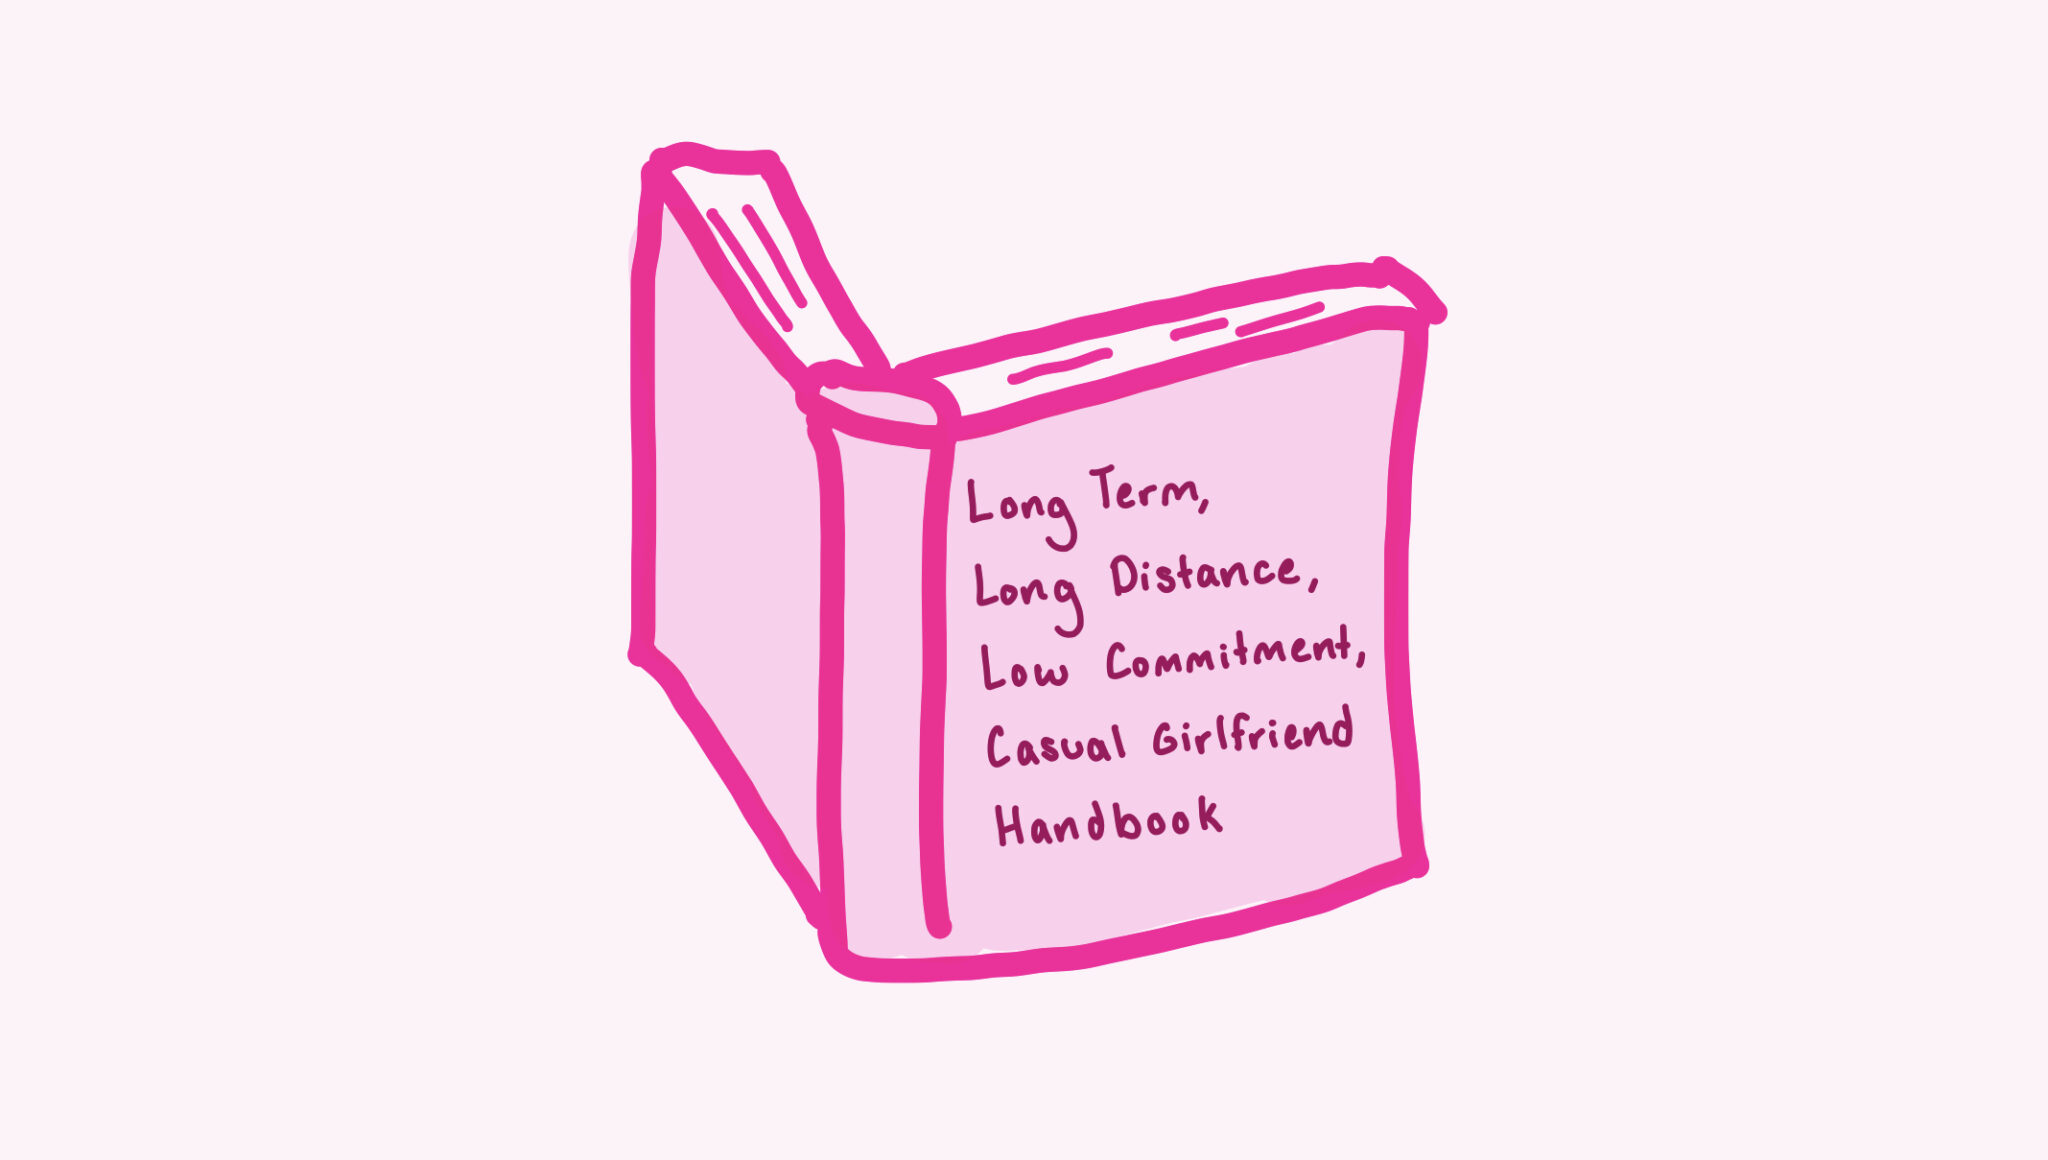 Long Term,
Long Distance,
Low Commitment,
Casual Girlfriend
Handbook